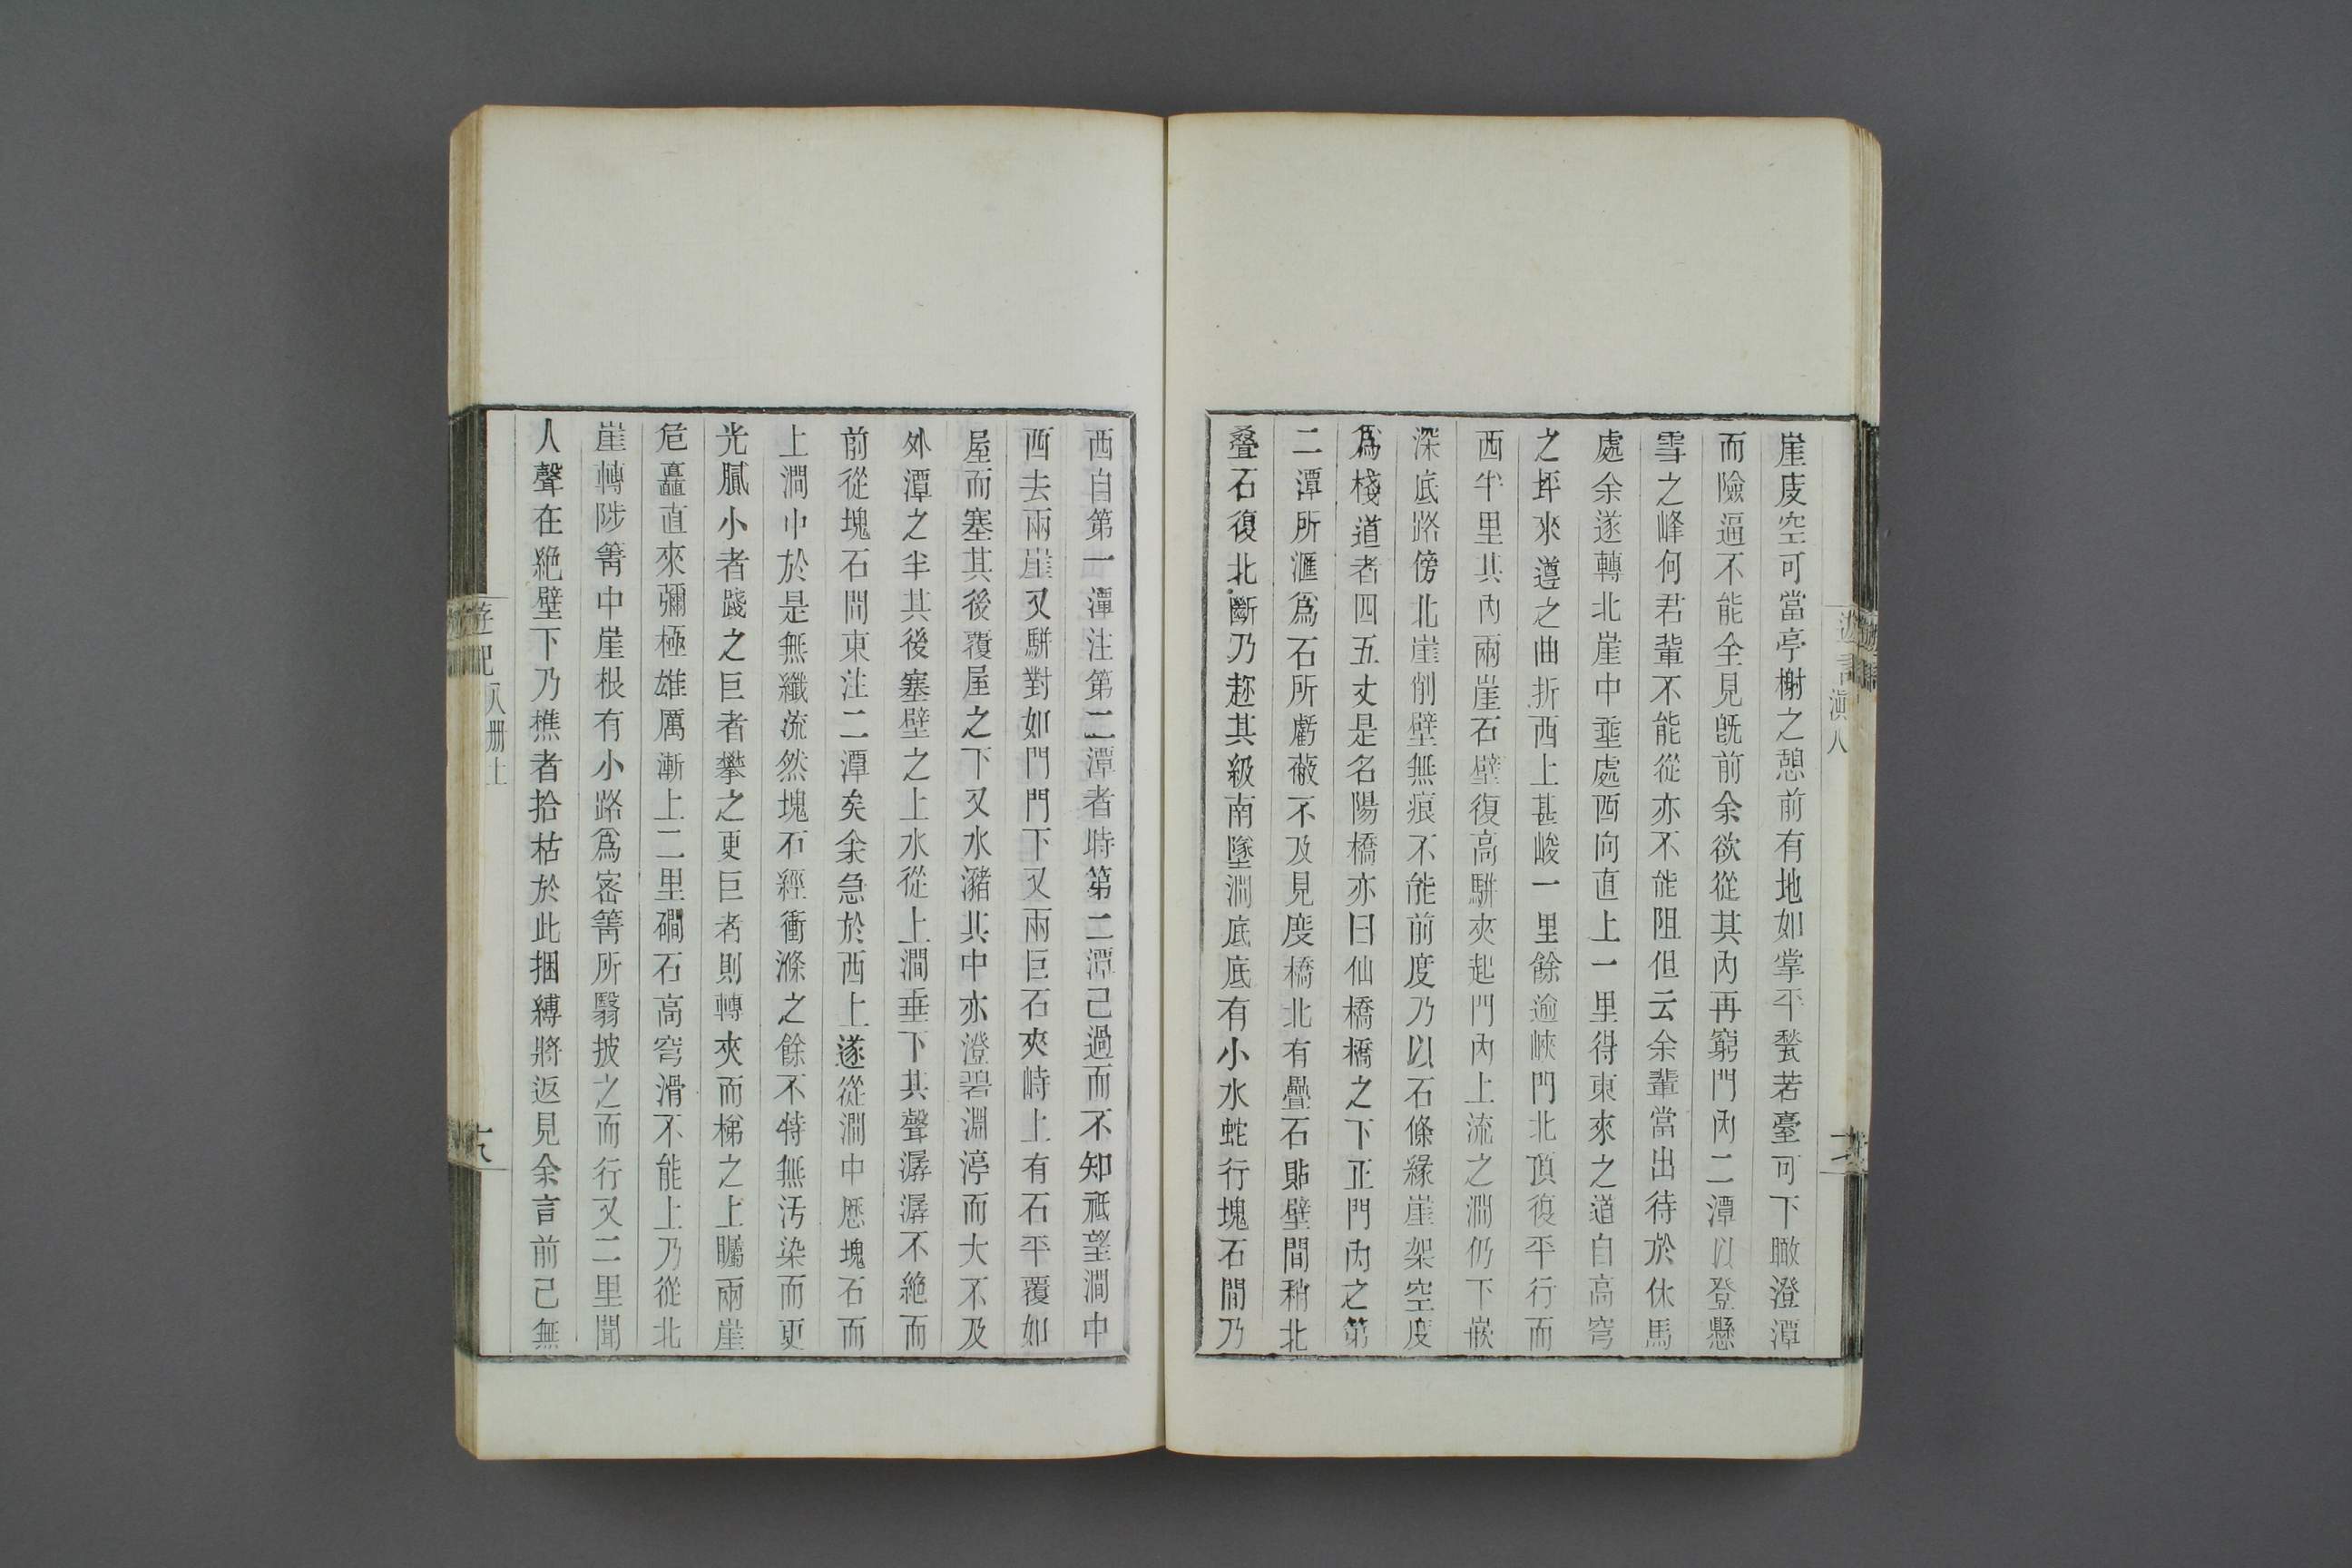 崖庋空可當亭榭之憩前有地如掌平甃若臺可下瞰澄潭
而險逼不能全見旣前余欲從其內再窮門內二潭以登懸
雪之峰何君輩不能從亦不能阻但云余輩當出待於休馬
處余遂轉北崖中垂處西向直上一里得東來之道自高穹
之坪來遵之曲折西上甚峻一里餘逾峽門北頂復平行而
西半里其內兩崖石壁復高駢夾起門內上流之澗仍下嵌
深底路傍北崖削壁無痕不能前度乃以石條緣崖架空度
爲棧道者四五丈是名陽橋亦曰仙橋橋之下正門內之第
二潭所滙爲石所虧蔽不及見度橋北有疊石貼壁間稍北
叠石復北斷乃趂其級南墜澗底底有小水蛇行塊石間乃
遊記
滇八
西自第一潭注第二潭者時第二潭已過而不知祇望澗中
西去兩崖又駢對如門門下又兩巨石夾峙上有石平覆如
屋而塞其後覆屋之下又水瀦其中亦澄碧淵渟而大不及
外潭之半其後塞壁之上水從上澗垂下其聲潺潺不絶而
前從塊石間東注二潭矣余急於西上遂從澗中歷塊石而
上澗中於是無纖流然塊石經衝滌之餘不特無汚染而更
光膩小者踐之巨者攀之更巨者則轉夾而梯之上矚兩崖
危矗直來彌極雄厲漸上二里磵石高穹滑不能上乃從北
崖轉陟箐中崖根有小路爲密箐所翳披之而行又二里聞
人聲在絶壁下乃樵者拾枯於此捆縛將返見余言前已無
遊記
八册上